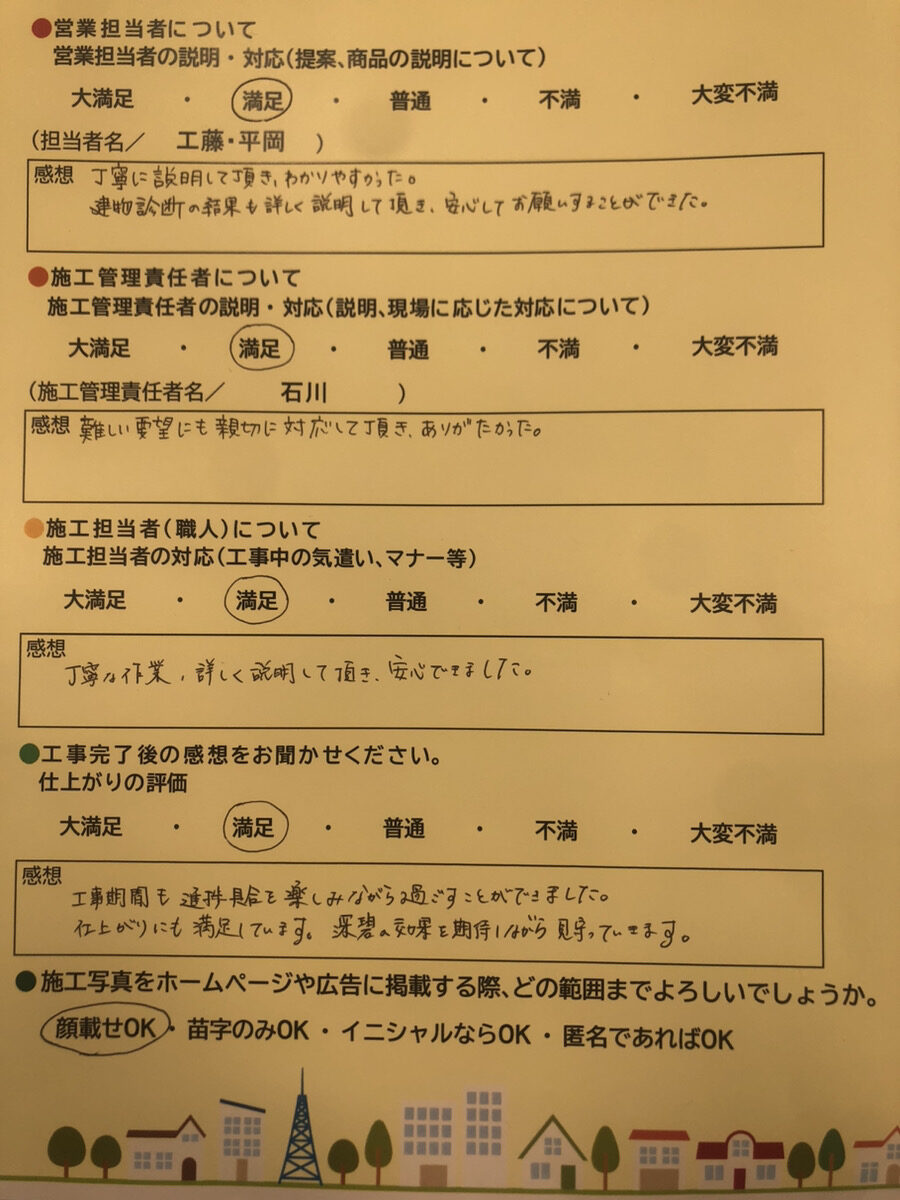 ●営業担当者について
営業担当者の説明・対応(提案、商品の説明について)
大満足 ・ 満足 ・ 普通 ・ 不満 ・ 大変不満
(担当者名／ 工藤・平岡 )
感想 丁寧に説明して頂き、わかりやすかった。
建物診断の結果も詳しく説明して頂き、安心してお願いすることができた。
●施工管理責任者について
施工管理責任者の説明・対応(説明、現場に応じた対応について)
大満足 ・ 満足 ・ 普通 ・ 不満 ・ 大変不満
(施工管理責任者名／ 石川 )
感想 難しい要望にも親切に対応して頂き、ありがたかった。
●施工担当者(職人)について
施工担当者の対応(工事中の気遣い、マナー等)
大満足 ・ 満足 ・ 普通 ・ 不満 ・ 大変不満
感想
丁寧な作業、詳しく説明して頂き、安心できました。
●工事完了後の感想をお聞かせください。
仕上がりの評価
大満足 ・ 満足 ・ 普通 ・ 不満 ・ 大変不満
感想
工事期間も進捗具合を楽しみながら過ごすことができました。
仕上がりにも満足しています。深碧の効果を期待しながら見守っていきます。
●施工写真をホームページや広告に掲載する際、どの範囲までよろしいでしょうか。
顔載せOK・苗字のみOK・イニシャルならOK・匿名であればOK